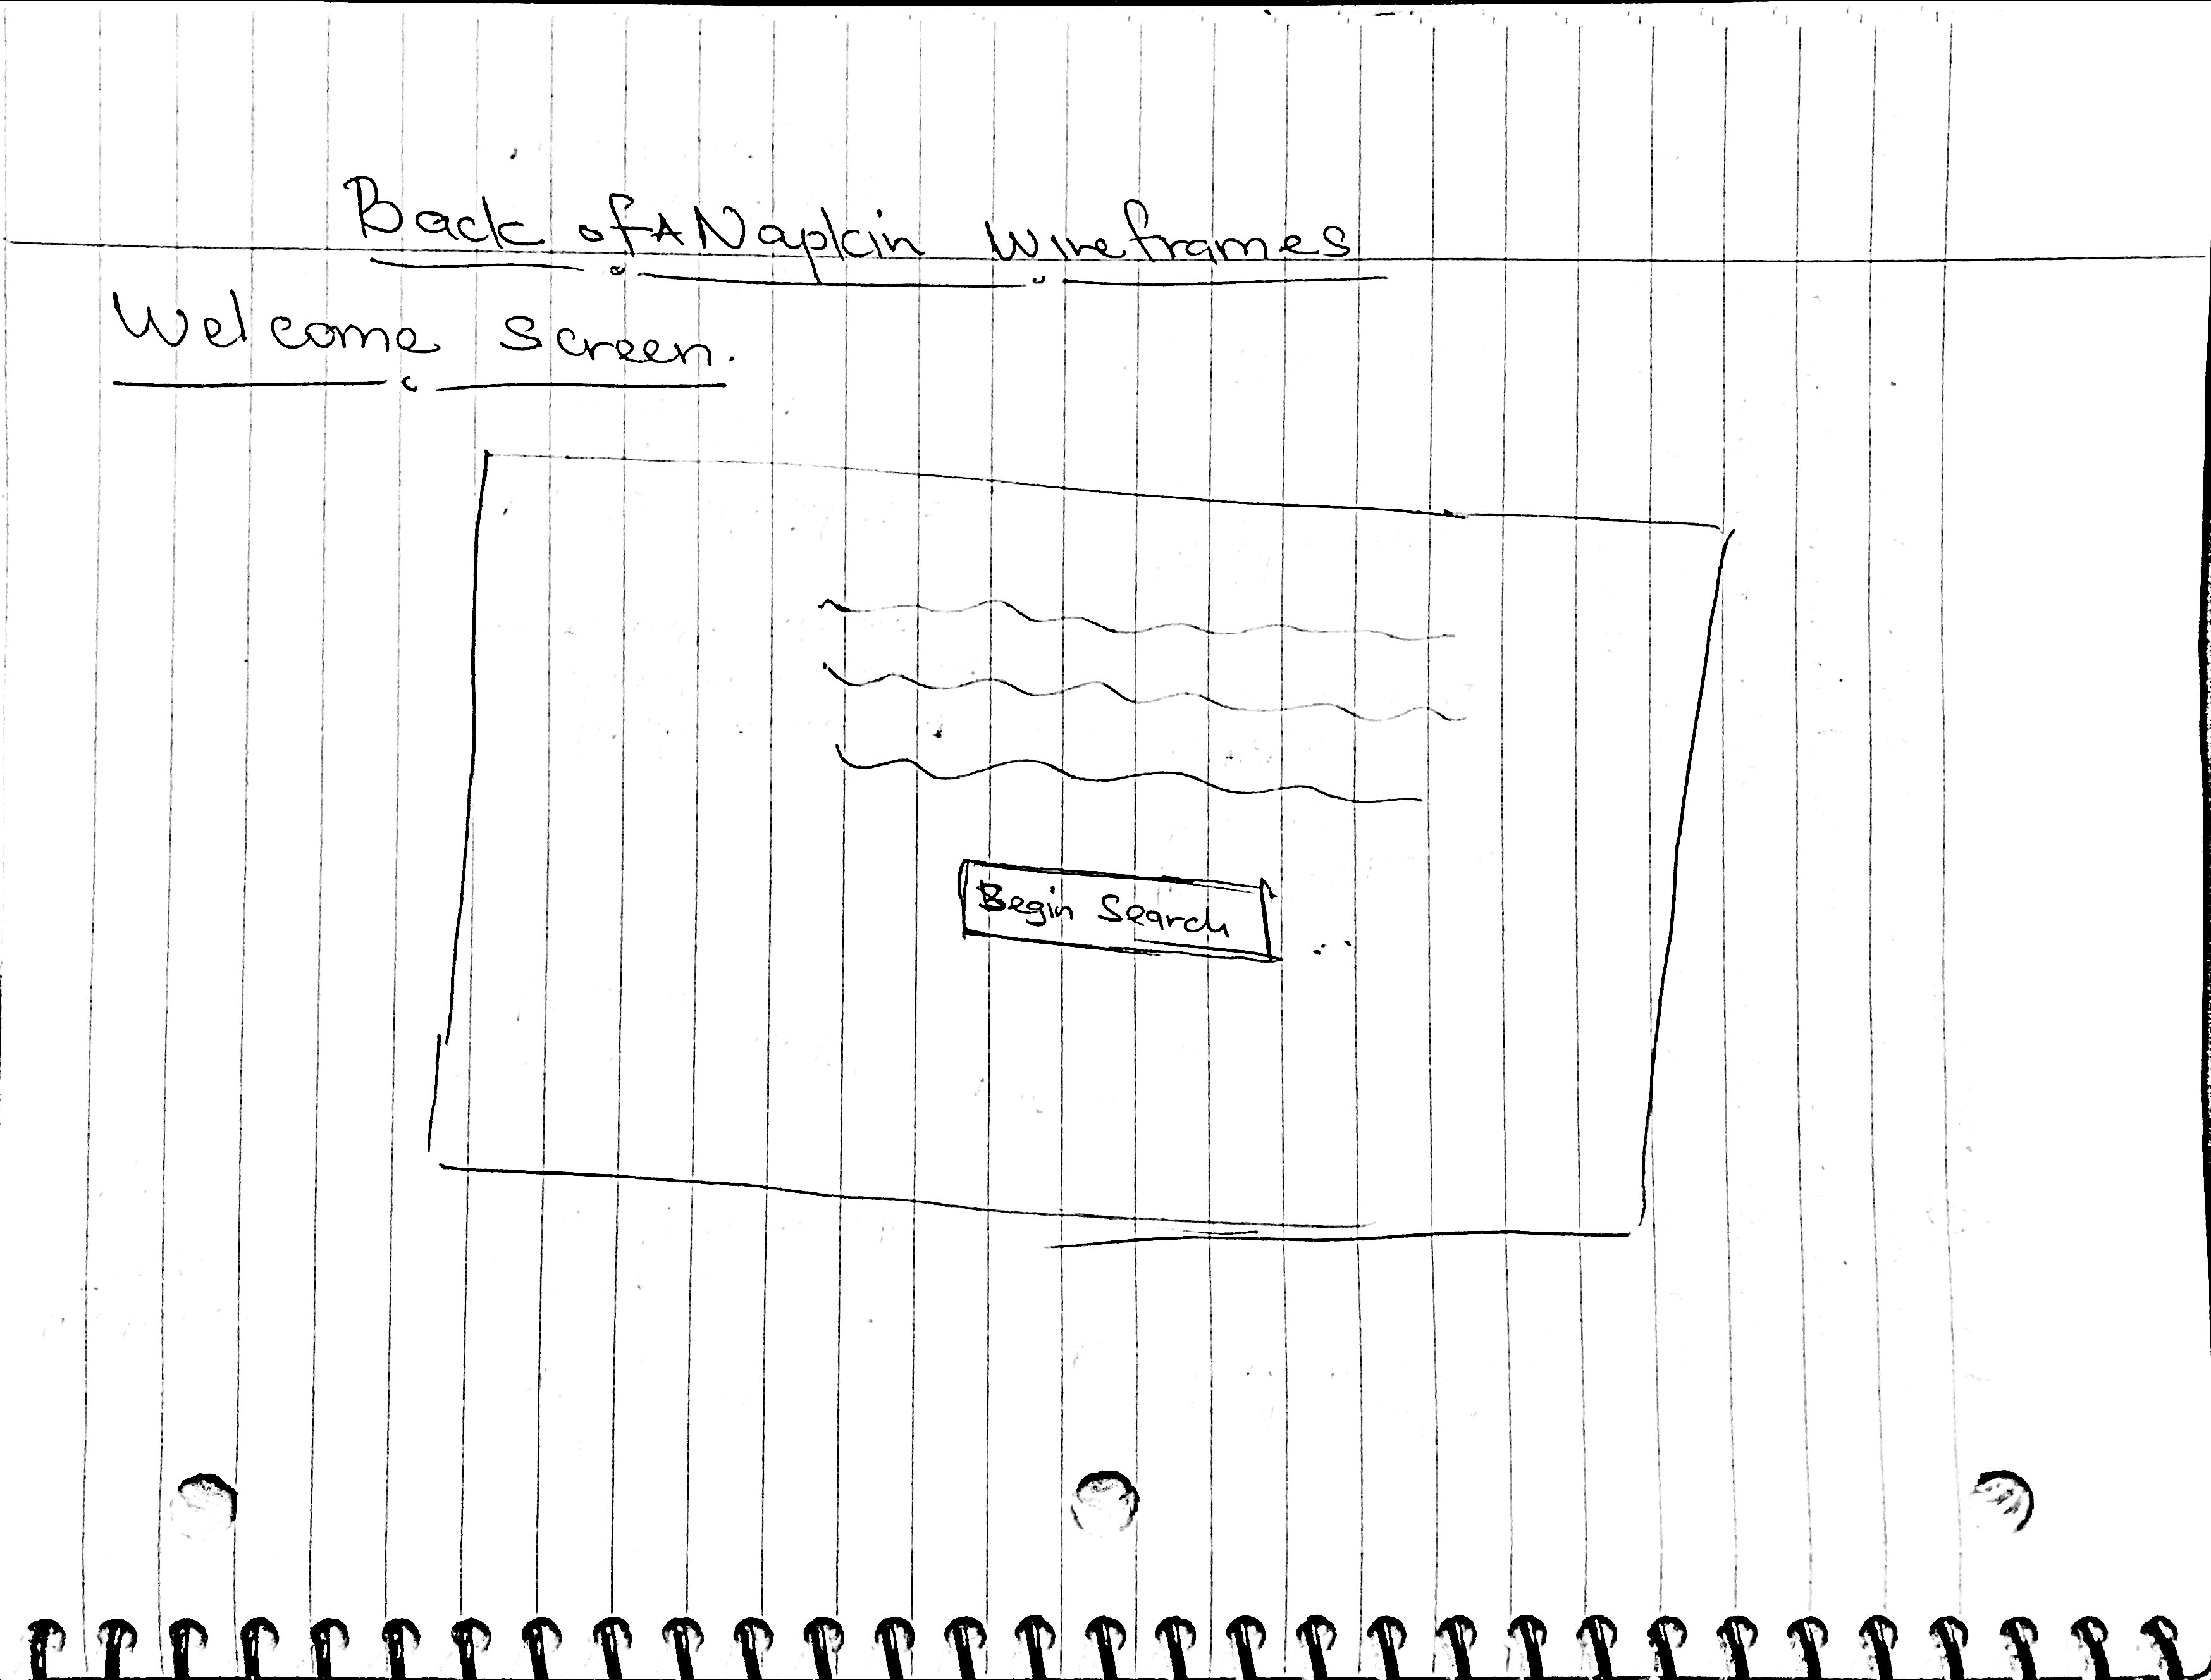 Back of A Napkin Wireframes
Welcome Screen.
Begin Search